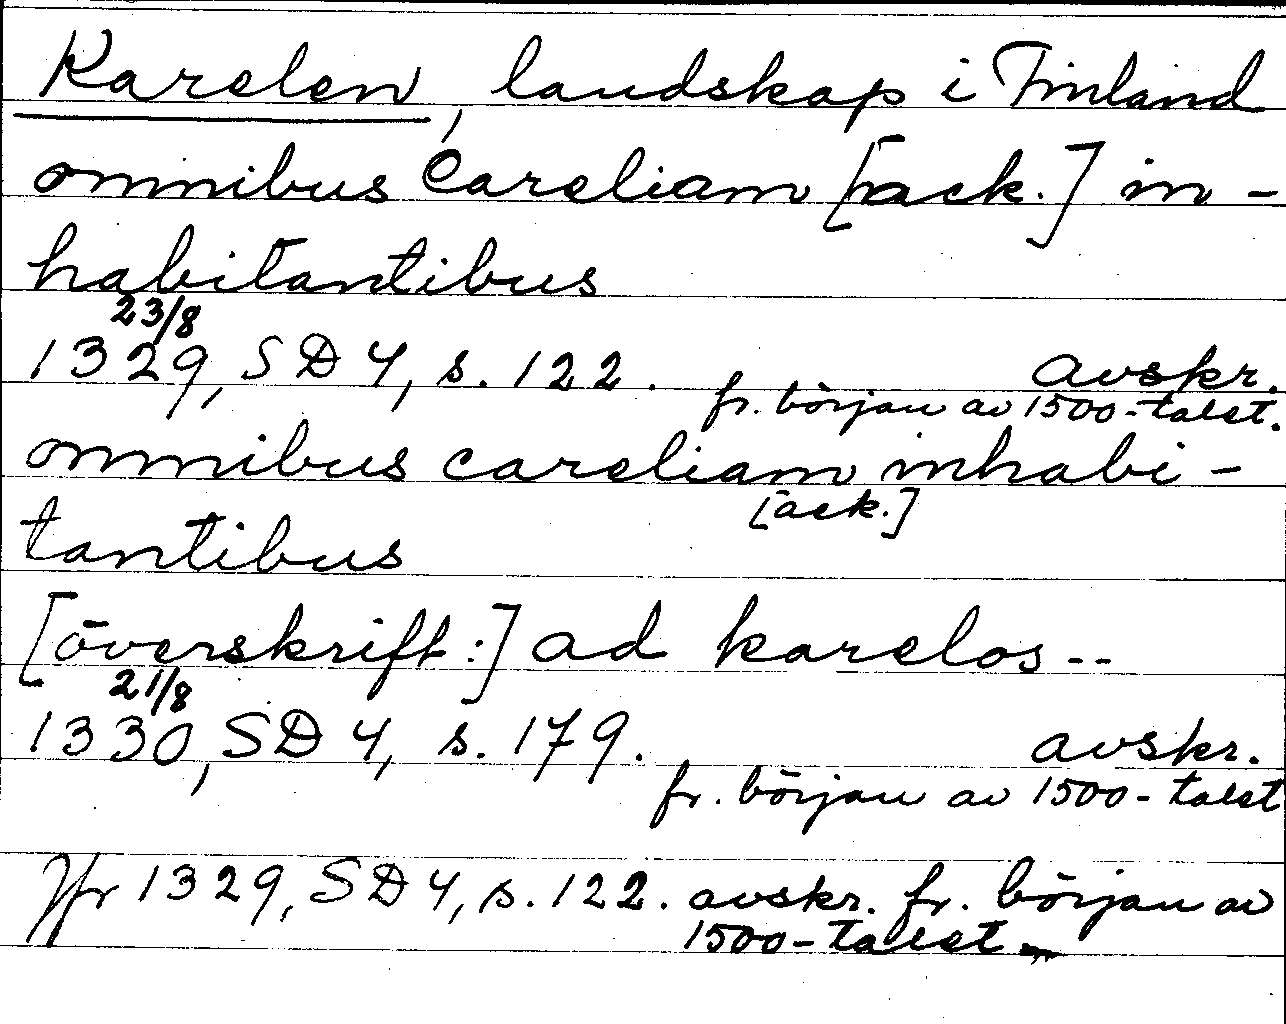 Karelen, landskap i Finland
omnibus Careliam [ack.] in-
habitantibus
23/8
1329, SD 4, s. 122. avskr.
fr. början av 1500-talet.
omnibus careliam inhabi-
[ack.]
tantibus
[överskrift:] ad karelos--
21/8
1330, SD 4, s. 179. avskr.
fr. början av 1500-talet
Jfr 1329, SD 4, s. 122. avskr. fr. början av
1500-talet